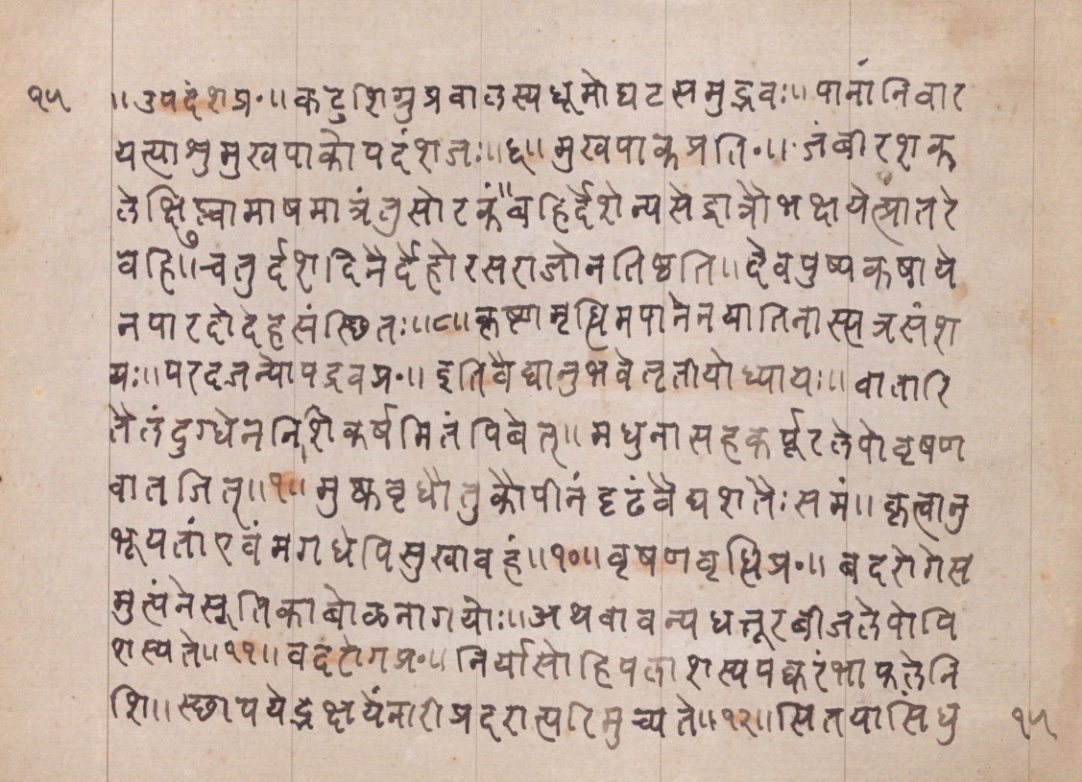 १५ ॥उपदंशप्र॰॥कटुशिग्रुप्रवालस्यधूमोघटसमुद्भवः॥पानांनिवार
यत्याश्रुमुखपाकोपदंशजः॥६॥मुखपाकप्रति॰॥जंबीरशक
लेक्षिप्त्वामाषमात्रंतुसोरकंवैवहिर्देशेन्यसेद्रात्रौभक्षयेत्प्रातरे
वहि॥चतुर्दशदिनैर्देहोरसराजोनतिष्ठति॥देवपुष्पकषाये
नपारदोदेहसंस्छितः॥८॥कृष्णमृध्रिमपानेनयातिनास्त्यत्रसंश
यः॥परदजन्योपद्रवप्र॰॥इतिवैद्यानुभवेतृतीयोध्यायः॥वातारि
तैलंदुग्धेननिशिकर्षमितंपिबेत्॥मधुनासहकर्पूरलेपोवृषण
वातजित्॥९॥मुष्कवृधौतुकौपीनंदृढंवैद्यशतैःसमं॥कृत्वानु
भूयतांएवंमगधेपिसुखावहं॥१०॥वृषणवृध्रिप्र॰॥बदरोगेस
मुत्पंनेसूतिकाबोळनागयोः॥अथवावन्यधत्तूरबीजलेपोवि
शस्यते॥११॥वदरोगप्र॰॥निर्यासोहिपलाशस्यपक्वरंभाफलेनि
शि॥स्छापयेद्भक्षयेंनारीप्रदरात्परिमुच्यते॥१२॥सितयासिंधु १५